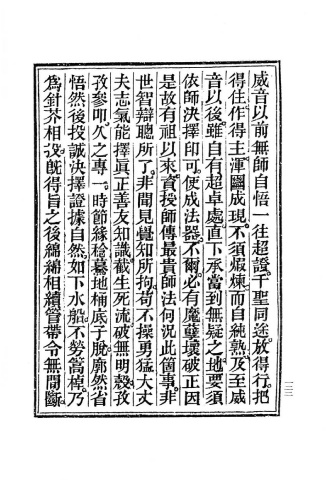 威音以前無師自悟一往超證千聖同途放得行把
得住作得主渾圇成現不須煅煉而自純熟及至威
音以後雖自有超卓處直下承當到無疑之地要須
依師決擇印可便成法器不爾必有魔孽壞破正因
是故有祖以來資授師傳最貴師法何況此箇事非
世智辯聰所了非聞見覺知所拘苟不操勇猛大丈
夫志氣能擇真正善友知識截生死流破無明殼孜
孜參叩久之專一時節緣稔驀地桶底子脫廓然省
悟然後投誠決擇證據自然如下水船不勞篙棹乃
爲針芥相投旣得旨之後綿綿相續管帶令無間斷
一三三